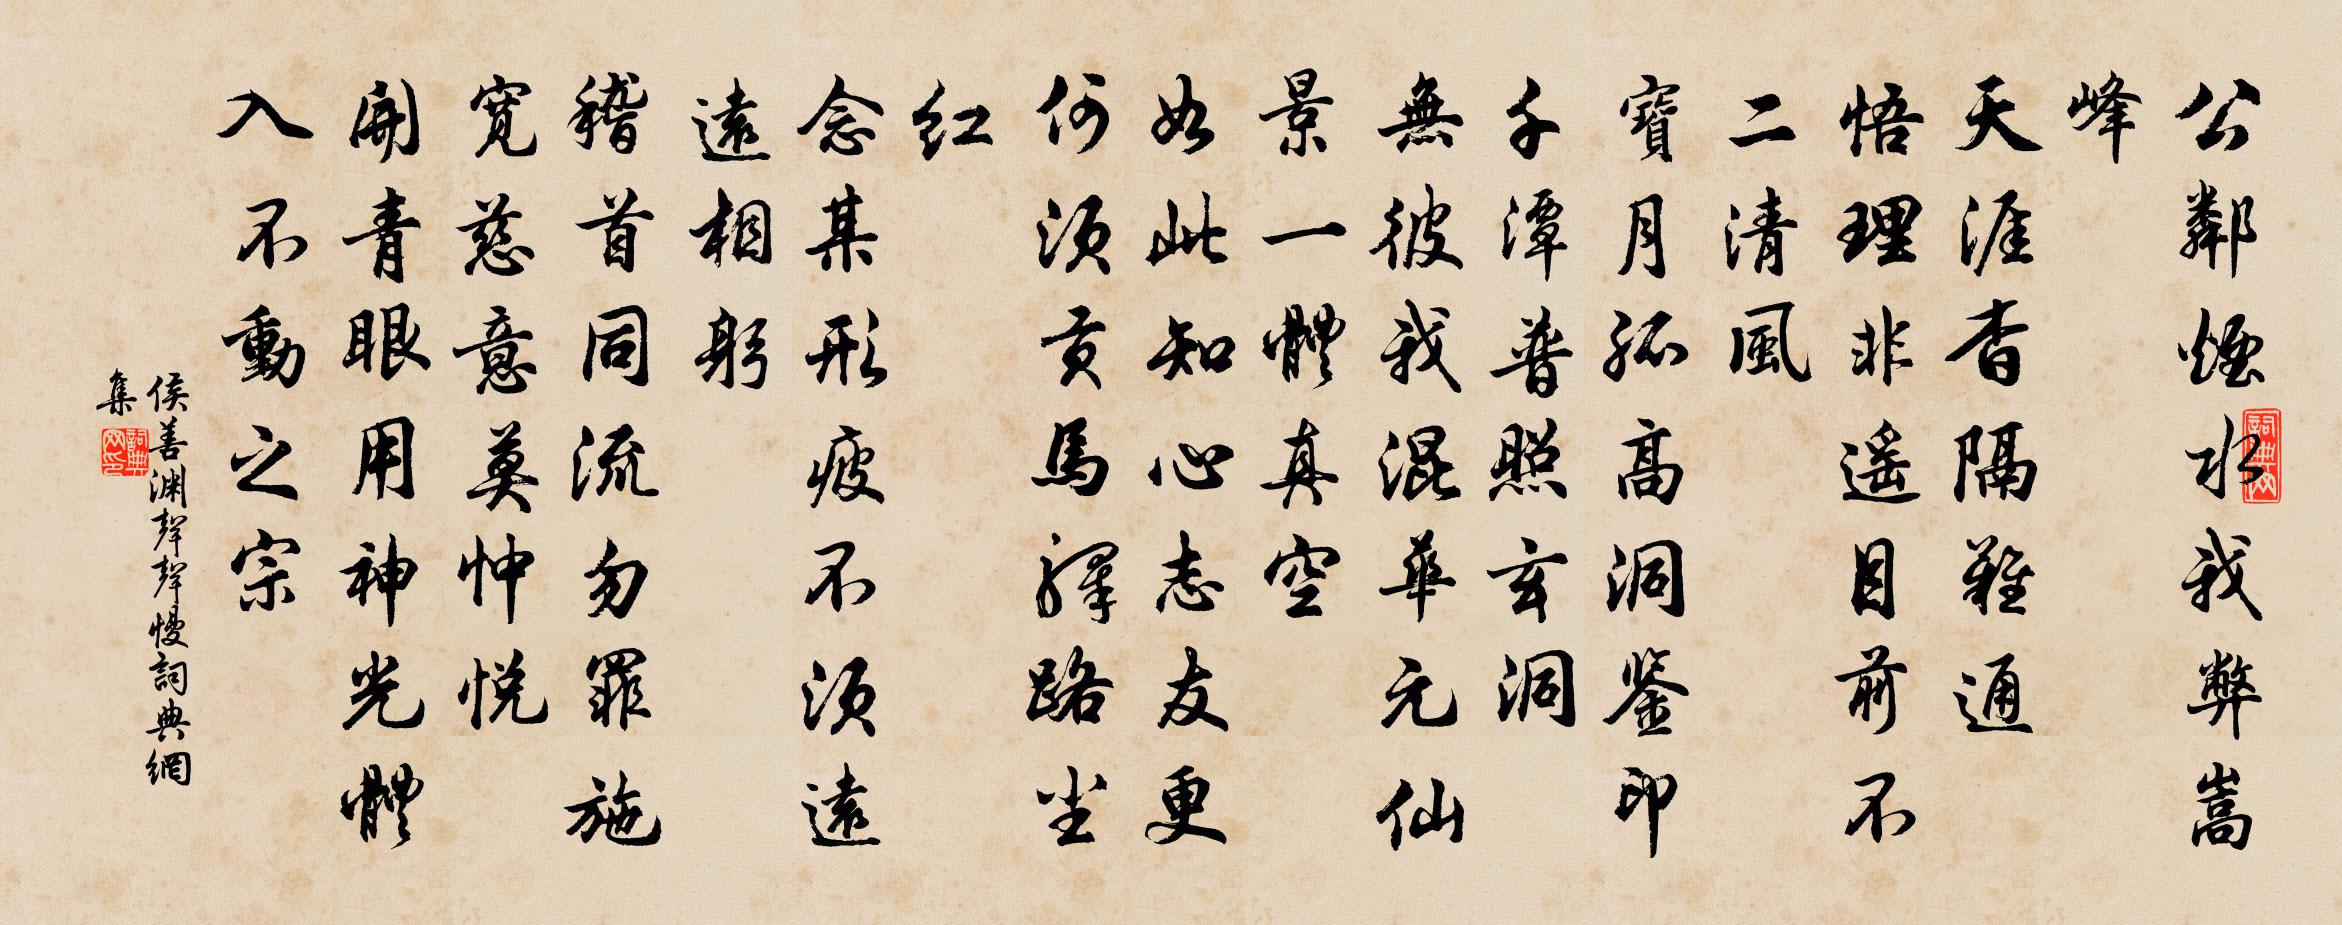 公鄰煙水我弊嵩
峰
天涯杳隔難通
悟理非遥目前不
二清風
寶月孤高洞鑒印
千潭普照玄洞
無彼我混華元仙
景一體真空
如此知心志友更
何須貢馬驛路坐
紅
念某形疲不須遠
遠相躬
稽首同流勿罪施
寬慈意莫忡悦
開青眼用神光體
入不動之宗
侯善渊聲聲慢詞典網
集